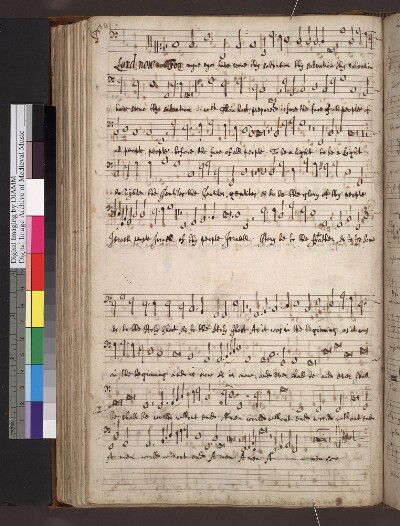 Digital Imaging by DIAMM
Digital Image Archive of Medieval Music
Lord now For myne eyes have seene thy salvation thy salvation thy salvation
have seene thy salvation which thou hast prepared before the face of all people of
all people people before the face of all people. To be a light to be a light
to lighten the Gentiles the Gentiles Gentiles & to be the glory of thy people
Israell people Israell of thy people Israell. Glory be to the father, & to the sonne
& to the Holy Ghost & to the Holy Ghost As it was in the beginning, as it was
in the beginning and is now & is now, and ever shall be and ever shall
be shall be world without ende Amen world without ende world without ende
A men world without ende A men A men A men